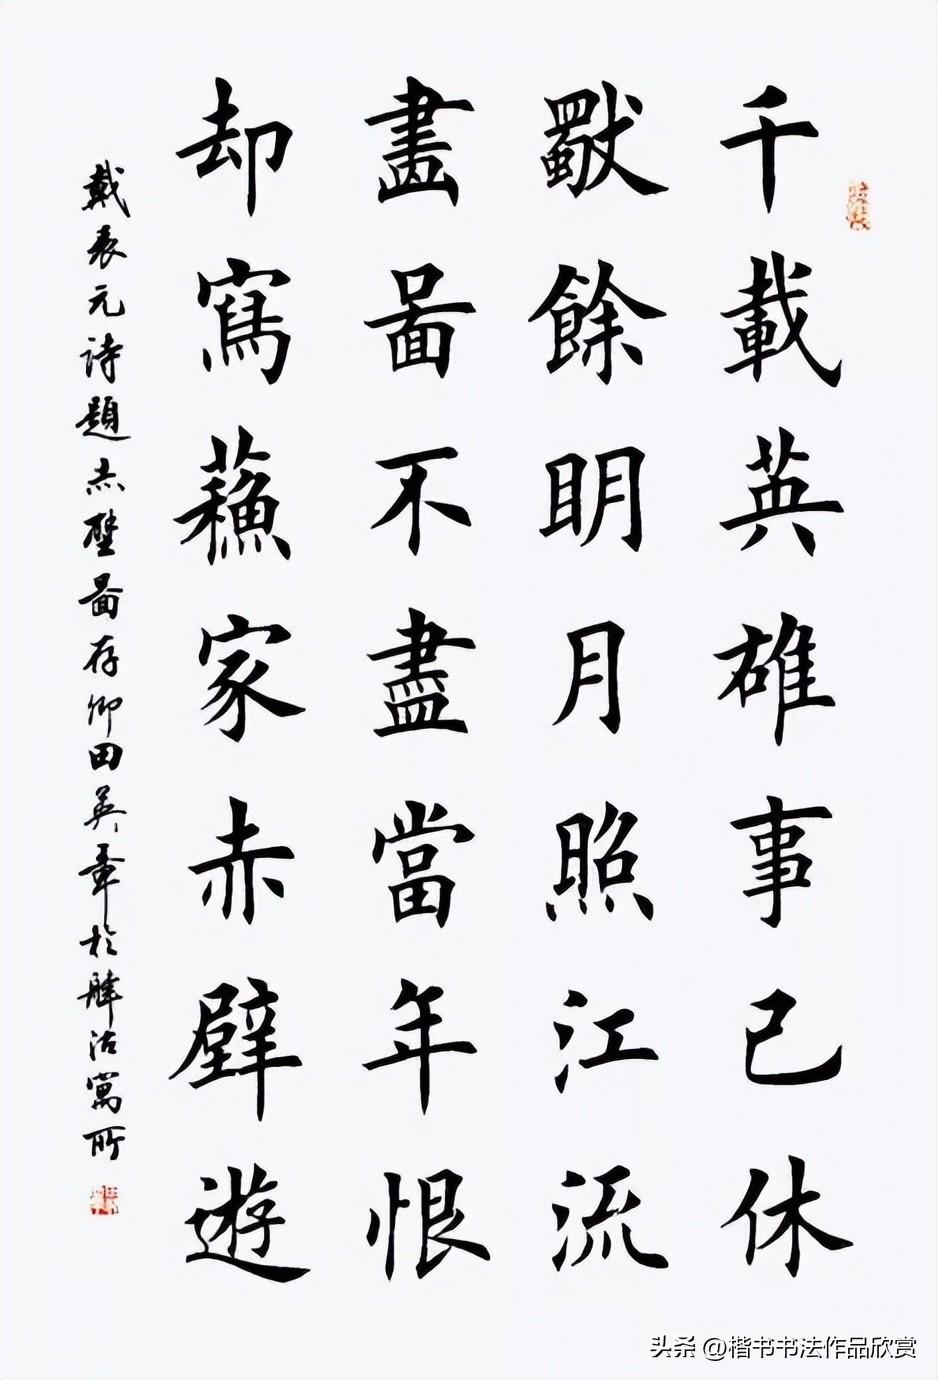 千載英雄事已休
獨餘明月照江流
畫啚不盡當年恨
却寫蘓家赤壁遊
戴表元詩題赤壁啚存卿田英章於津沽寓所
头条 @楷书书法作品欣赏